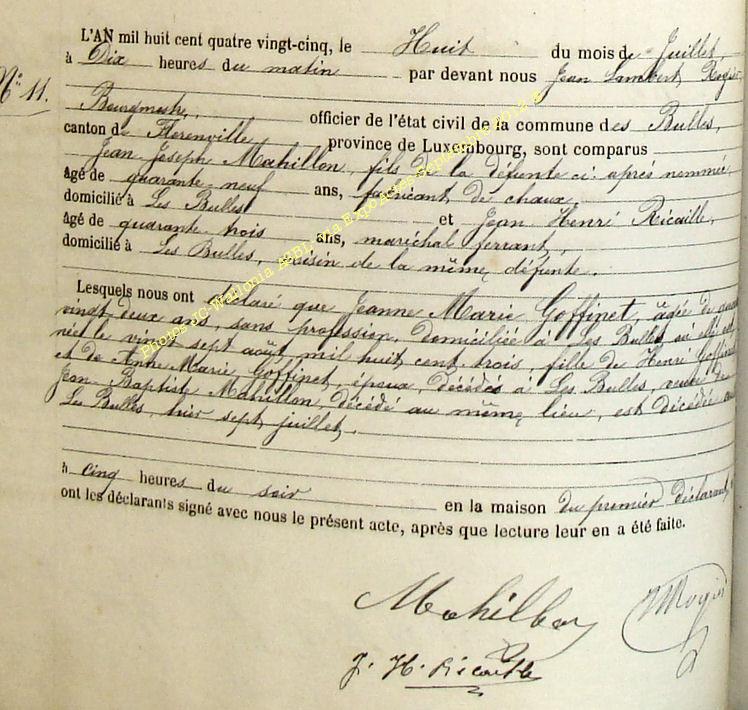 L'AN mil huit cent quatre vingt-cinq, le Huit du mois de Juillet
à Dix heures du matin par devant nous Jean Lambert
N° 11.
Bourgmestre, officier de l'état civil de la commune des Bulles,
canton de Florenville province de Luxembourg, sont comparus
Jean Joseph Mahillon, fils de la défunte ci-après nommée,
âgé de quarante neuf ans, fabricant de chaux,
domicilié à Les Bulles et Jean Henri Ricaille,
âgé de quarante trois ans, maréchal ferrant,
domicilié à Les Bulles, voisin de la même défunte.
Lesquels nous ont déclaré que Jeanne Marie Goffinet, âgée de quatre
vingt deux ans, sans profession, domiciliée à Les Bulles, où elle est
née le vingt sept août mil huit cent trois, fille de Henri Goffinet
et de Anne Marie Goffinet, époux, décédés à Les Bulles, veuve de
Jean Baptiste Mahillon, décédé au même lieu, est décédée
Les Bulles, hier sept juillet.
à cinq heures du soir en la maison du premier déclarant,
ont les déclarants signé avec nous le présent acte, après que lecture leur en a été faite.
Mahillon
J. H. Ricaille